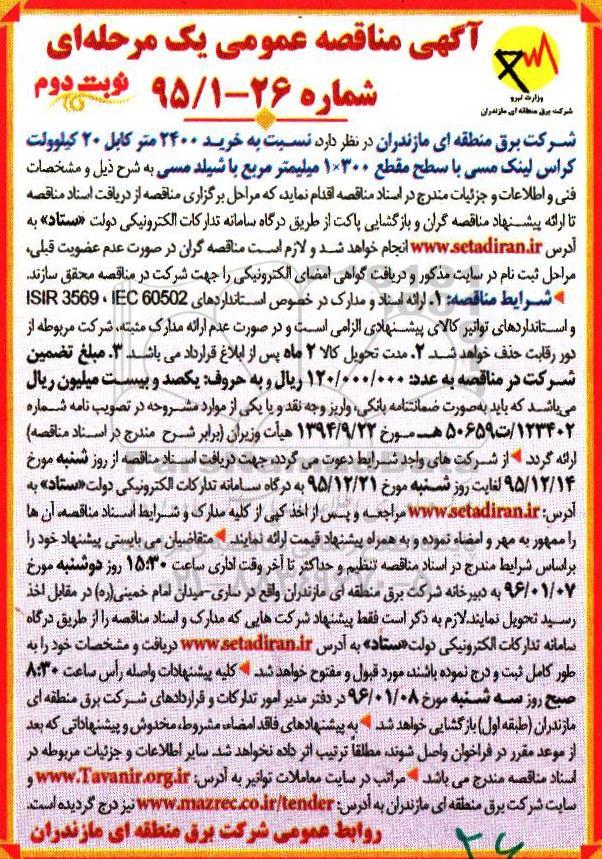 آگهی مناقصه عمومی یک مرحله‌ای
شماره ۲۶-۹۵/۱
نوبت دوم
وزارت نیرو
شرکت برق منطقه ای مازندران
شرکت برق منطقه ای مازندران در نظر دارد، نسبت به خرید ۲۴۰۰ متر کابل ۲۰ کیلوولت
کراس لینک مسی با سطح مقطع ۳۰۰*۱ میلیمتر مربع با شیلد مسی به شرح ذیل و مشخصات
فنی و اطلاعات و جزئیات مندرج در اسناد مناقصه اقدام نماید، که مراحل برگزاری مناقصه از دریافت اسناد مناقصه
تا ارائه پیشنهاد مناقصه گران و بازگشایی پاکت از طریق درگاه سامانه تدارکات الکترونیکی دولت «ستاد» به
آدرس www.setadiran.ir انجام خواهد شد و لازم است مناقصه گران در صورت عدم عضویت قبلی،
مراحل ثبت نام در سایت مذکور و دریافت گواهی امضای الکترونیکی را جهت شرکت در مناقصه محقق سازند.
شرایط مناقصه: ۱. ارائه اسناد و مدارک در خصوص استانداردهای ISIR 3569 ، IEC 60502
و استانداردهای توانیر کالای پیشنهادی الزامی است و در صورت عدم ارائه مدارک مثبته، شرکت مربوطه از
دور رقابت حذف خواهد شد. ۲. مدت تحویل کالا ۲ ماه پس از ابلاغ قرارداد می باشد. ۳. مبلغ تضمین
شرکت در مناقصه به عدد: ۱۲۰/۰۰۰/۰۰۰ ریال و به حروف: یکصد و بیست میلیون ریال
می‌باشد که باید به‌صورت ضمانتنامه بانکی، واریز وجه نقد و یا یکی از موارد مشروحه در تصویب نامه شماره
۱۲۳۴۰۲/ت۵۰۶۵۹ هـ مورخ ۱۳۹۴/۹/۲۲ هیأت وزیران (برابر شرح مندرج در اسناد مناقصه)
ارائه گردد. از شرکت های واجد شرایط دعوت می گردد، جهت دریافت اسناد مناقصه از روز شنبه مورخ
۹۵/۱۲/۱۴ لغایت روز شنبه مورخ ۹۵/۱۲/۲۱ به درگاه سامانه تدارکات الکترونیکی دولت«ستاد» به
آدرس: www.setadiran.ir مراجعه و پس از اخذ کپی از کلیه مدارک و شرایط اسناد مناقصه، آن ها
را ممهور به مهر و امضاء نموده و به همراه پیشنهاد قیمت ارائه نمایند. متقاضیان می بایستی پیشنهاد خود را
براساس شرایط مندرج در اسناد مناقصه تنظیم و حداکثر تا آخر وقت اداری ساعت ۱۵:۳۰ روز دوشنبه مورخ
۹۶/۰۱/۰۷ به دبیرخانه شرکت برق منطقه ای مازندران واقع در ساری-میدان امام خمینی(ره) در مقابل اخذ
رسید تحویل نمایند.لازم به ذکر است فقط پیشنهاد شرکت هایی که مدارک و اسناد مناقصه را از طریق درگاه
سامانه تدارکات الکترونیکی دولت«ستاد» به آدرس www.setadiran.ir دریافت و مشخصات خود را به
طور کامل ثبت و درج نموده باشند، مورد قبول و مفتوح خواهد شد. کلیه پیشنهادات واصله رأس ساعت ۸:۳۰
صبح روز سه شنبه مورخ ۹۶/۰۱/۰۸ در دفتر مدیر امور تدارکات و قراردادهای شرکت برق منطقه ای
مازندران (طبقه اول) بازگشایی خواهد شد. به پیشنهادهای فاقد امضاء، مشروط، مخدوش و پیشنهاداتی که بعد
از موعد مقرر در فراخوان واصل شوند، مطلقاً ترتیب اثر داده نخواهد شد. سایر اطلاعات و جزئیات مربوطه در
اسناد مناقصه مندرج می باشد. مراتب در سایت معاملات توانیر به آدرس: www.Tavanir.org.ir و
سایت شرکت برق منطقه ای مازندران به آدرس: www.mazrec.co.ir/tender نیز درج گردیده است.
روابط عمومی شرکت برق منطقه ای مازندران